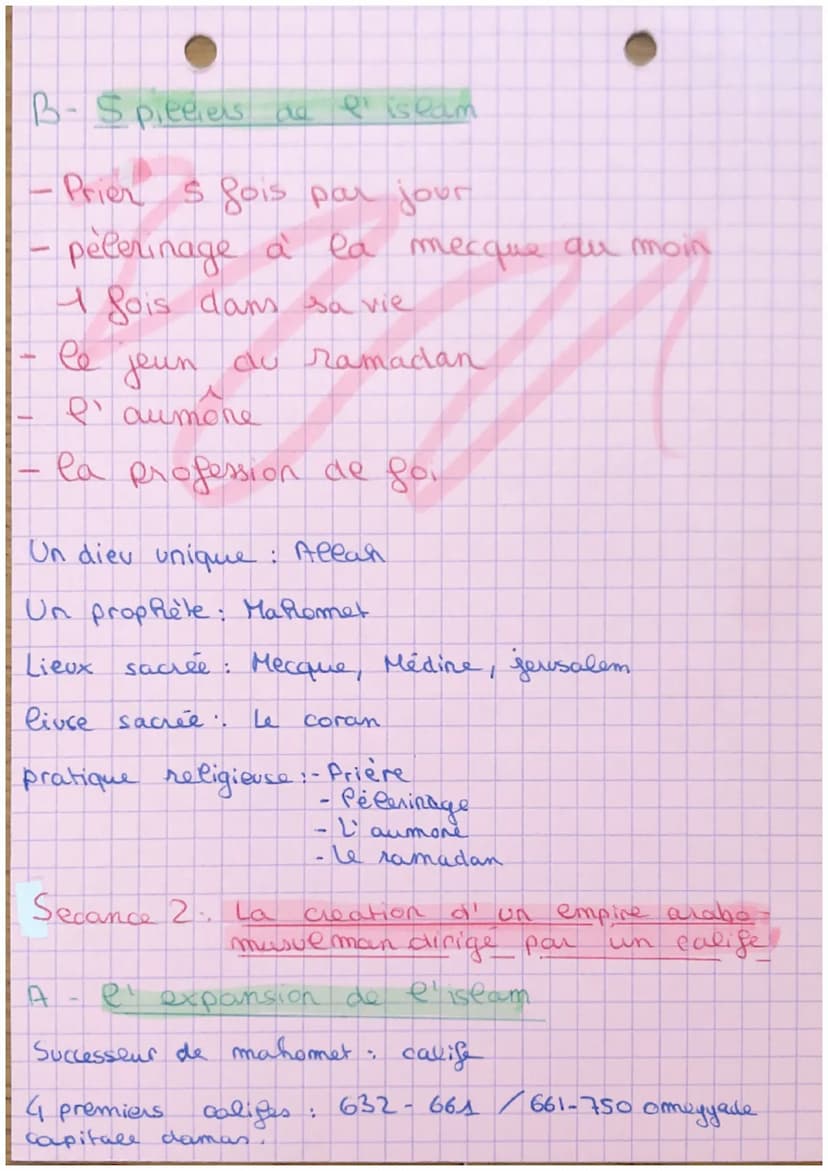 B- 5 pilliers de l'islam
- Prier 5 fois par jour
- pèlerinage à la mecque au moin
1 fois dans sa vie
- le jeun du ramadan
- l'aumône
- la profession de foi
Un dieu unique : Allah
Un prophète : Mahomet
Lieux sacrée : Mecque, Médine, jerusalem
livre sacrée : Le coran
pratique religieuse : - Prière
- Pélerinage
- L'aumone
- Le ramadan
Secance 2 : La creation d'un empire arabo-
musulman dirigé par un calife
A - l'expansion de l'islam
Successeur de mahomet : calife
4 premiers califes : 632 - 661 / 661-750 omeyyade
capitale damas.